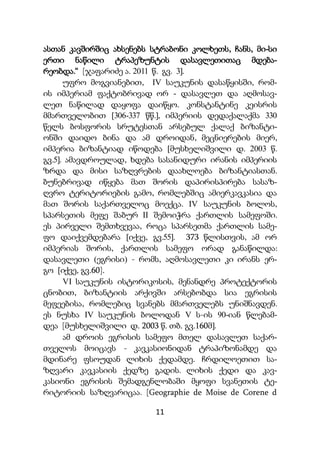 ასთან კავშირშიც ახსენებს სტრაბონი კოლხეთს, ჩანს, მი-სი
ერთი ნაწილი ტრაპეზუნტის დასავლეთითაც მდება-
რეობდა.“ [ჯაფარიძე ა. 2011 წ. გვ. 3].
უფრო მოგვიანებით, IV საუკუნის დასაწყისში, რომ-
ის იმპერიამ ფაქტობრივად ორ - დასავლეთ და აღმოსავ-
ლეთ ნაწილად დაყოფა დაიწყო. კონსტანტინე კეისრის
მმართველობით [306-337 წწ.], იმპერიის დედაქალაქმა 330
წელს ბოსფორის სრუტესთან არსებულ ქალაქ ბიზანტი-
ონში დაიდო ბინა და ამ დროიდან, მეცნიერების მიერ,
იმპერია ბიზანტიად იწოდება [მუსხელიშვილი დ. 2003 წ.
გვ.5]. ამავდროულად, ხდება სასანიდური ირანის იმპერიის
ზრდა და მისი საზღვრების დაახლოება ბიზანტიასთან.
ბუნებრივად იწყება მათ შორის დაპირისპირება სასაზ-
ღვრო ტერიტორიების გამო, რომლებშიც ამიერკავკასია და
მათ შორის საქართველოც მოექცა. IV საუკუნის ბოლოს,
სპარსეთის მეფე შაბურ II შემოიჭრა ქართლის სამეფოში.
ეს პირველი შემთხვევაა, როცა სპარსეთმა ქართლის სამე-
ფო დაიქვემდებარა [იქვე, გვ.55]. 373 წლისთვის, ამ ორ
იმპერიას შორის, ქართლის სამეფო ორად განაწილდა:
დასავლეთი (ეგრისი) - რომს, აღმოსავლეთი კი ირანს ერ-
გო [იქვე, გვ.60].
VI საუკუნის ისტორიკოსის, მენანდრე პროტექტორის
ცნობით, ბიზანტიის არქივში არსებობდა სია ეგრისის
მეფეებისა, რომლებიც სვანებს მმართველებს უნიშნავდენ.
ეს ნუსხა IV საუკუნის ბოლოდან V ს-ის 90-იან წლებამ-
დეა [მუსხელიშვილი დ. 2003 წ. თბ. გვ.160შ].
ამ დროის ეგრისის სამეფო მთელ დასავლეთ საქარ-
თველოს მოიცავს - კავკასიონიდან ტრაპიზონამდე და
მდინარე ფსოუდან ლიხის ქედამდე. ჩრდილოეთით სა-
ზღვარი კავკასიის ქედზე გადის. ლიხის ქედი და კავ-
კასიონი ეგრისის შემადგენლობაში მყოფი სვანეთის ტე-
რიტორიის საზღვარიცაა. [Geographie de Moise de Corene d
11